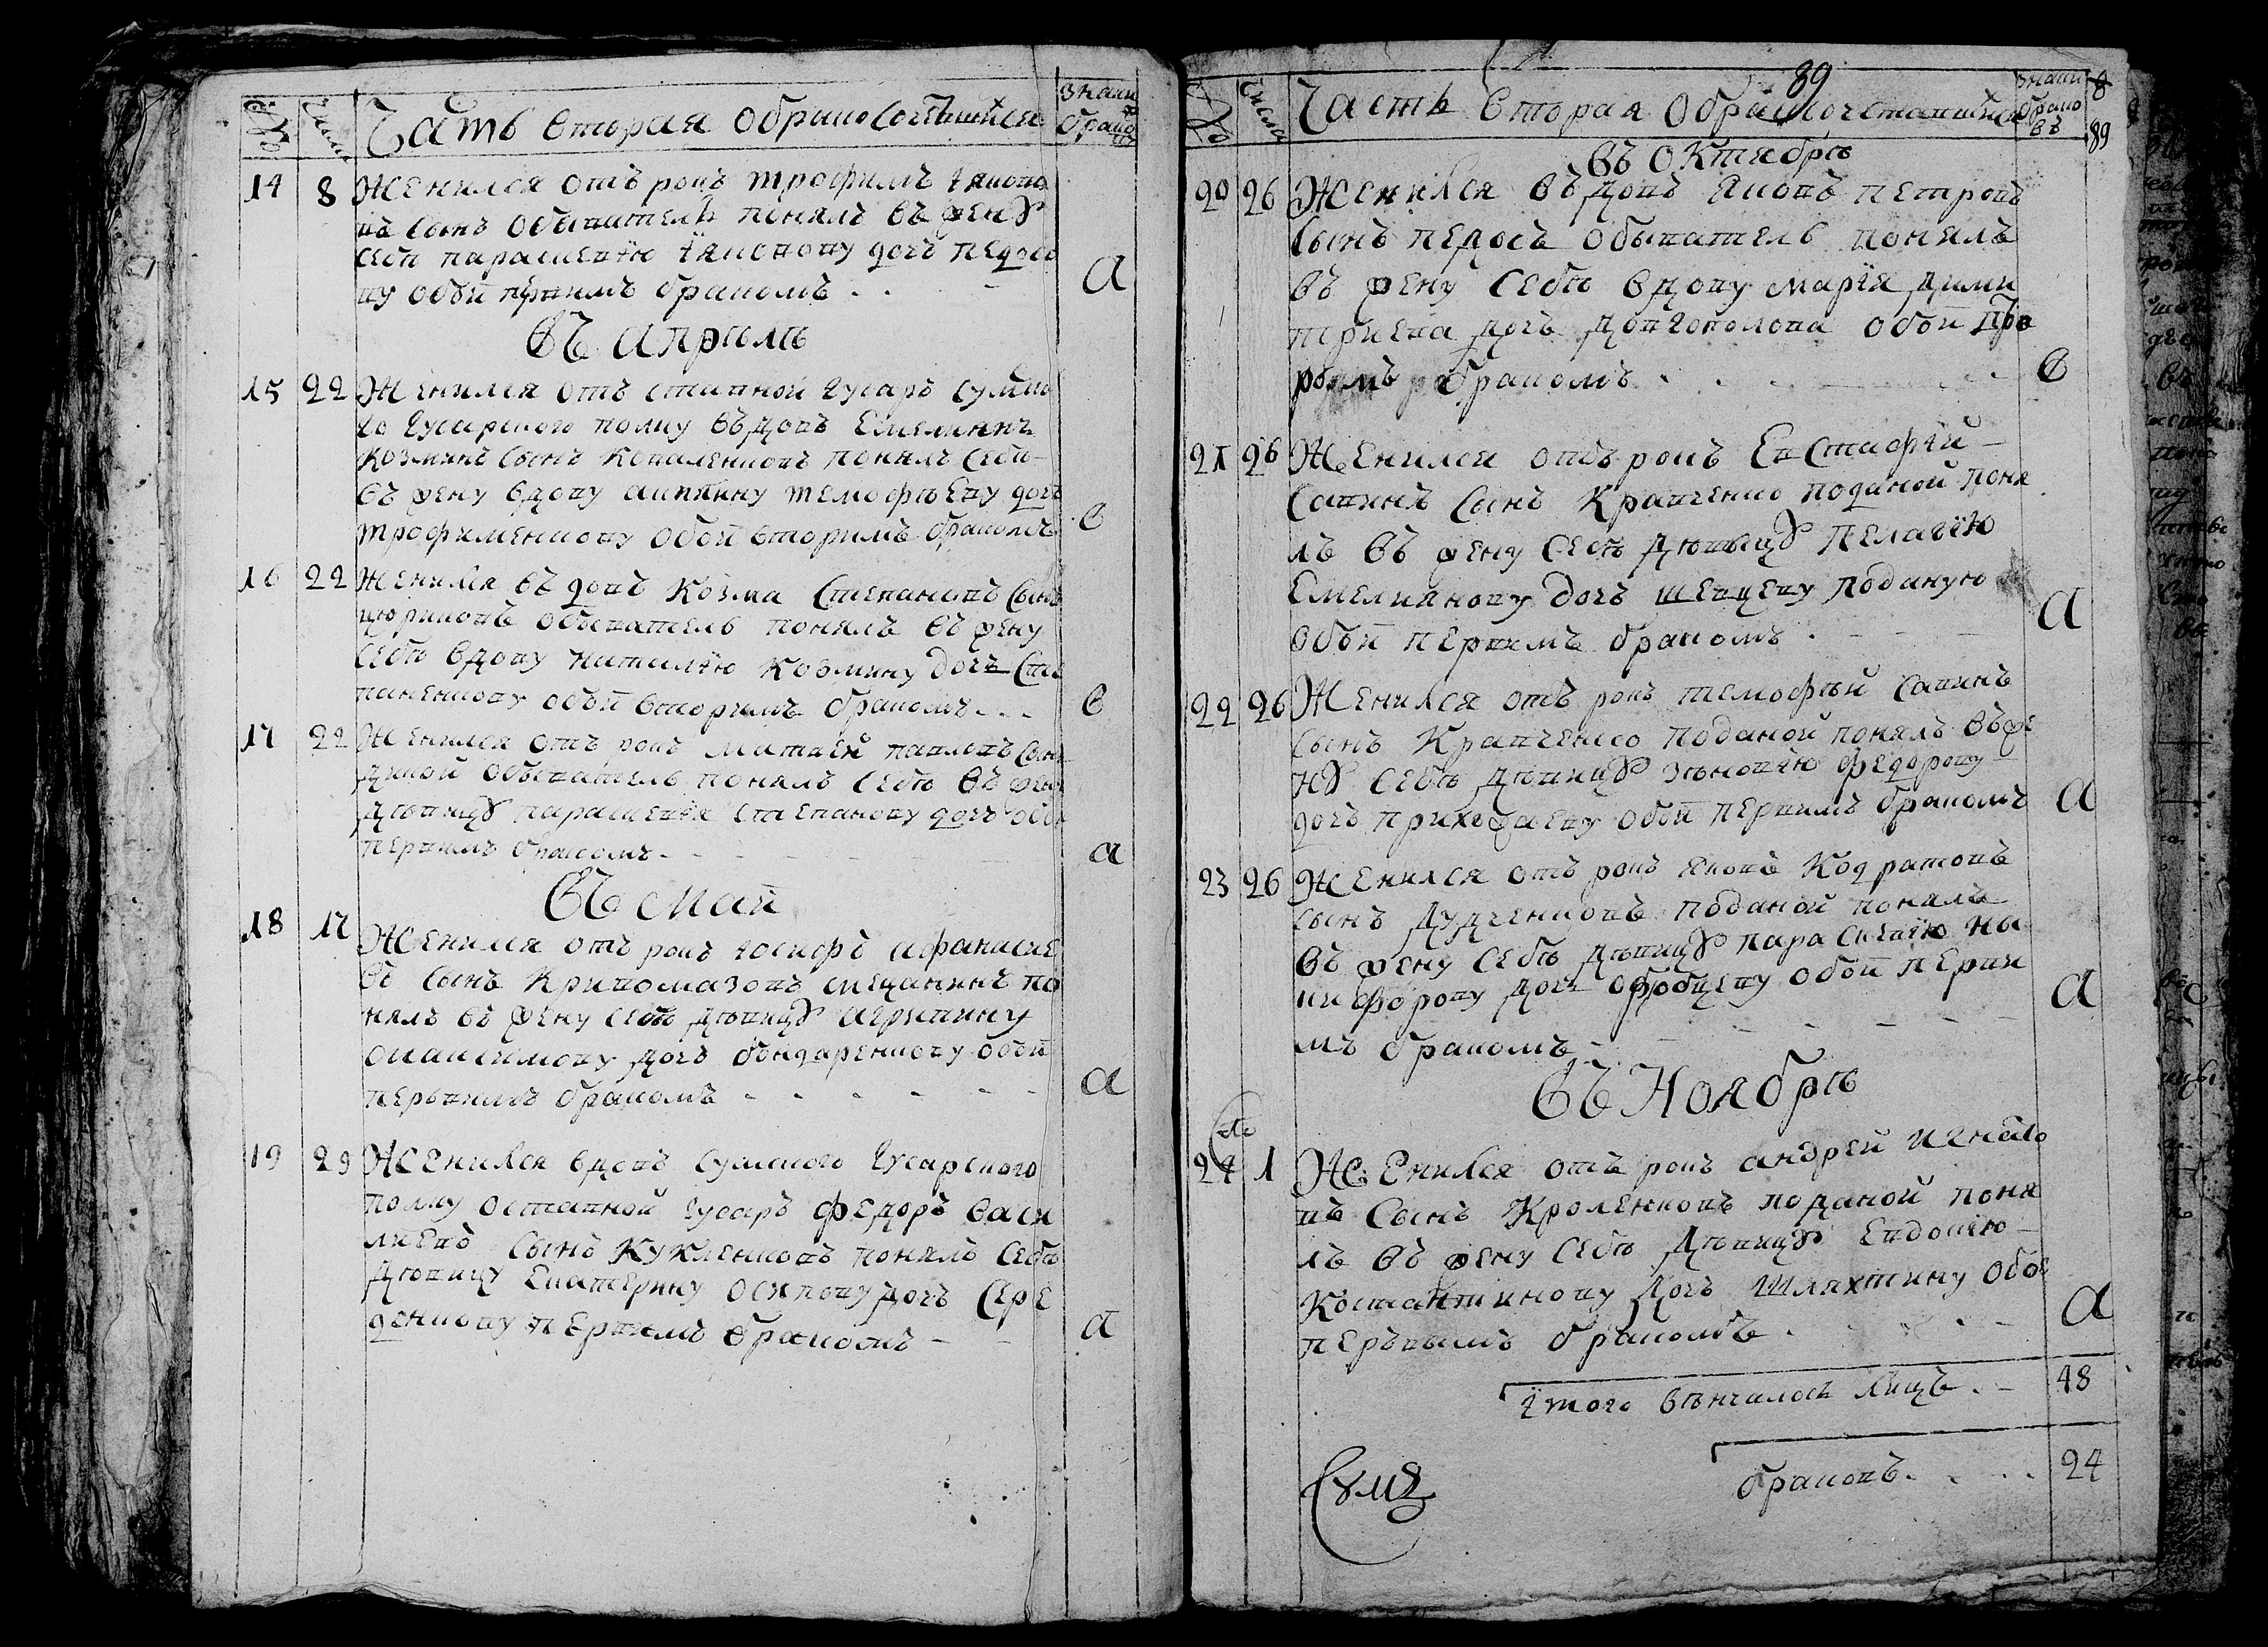 №
Числа
Часть вторая о брако сочетавшихся
Знаки браковъ
14 8 Женился отъ рокъ трофимъ іяково
въ сынъ обыватель понялъ въ жену
себѣ параскевію іяковову дочь
ву обои первимъ бракомъ . . а
Въ апрѣлѣ
15 22 Женился отъ ставной гусаръ сумско
го гусарского полку вдовъ Емелиянъ
козминъ сынъ коваленковъ понялъ себѣ
въ жену вдову темофѣеву дочь
трофименкову обои вторимъ бракомъ в
16 22 Женился вдовъ Козма Степановъ сынъ
цюриковъ обыватель понялъ въ жену
себѣ вдову наталѣю козмину дочь сте
паненкову обои вторимъ бракомъ . . . в
17 22 Женился отъ рокъ матвей павловъ сынъ
дикой обыватель понялъ себѣ въ жену
дѣвицу параскевія степанову дочь обои
первимъ бракомъ . а
Въ май
18 17 Женился отъ рокъ іосифъ афанасіе
въ сынъ кривомазовъ мещанинъ по
нялъ въ жену себѣ дѣвицу агрипину
онаисимову дочь бондаренкову обои
первимъ бракомъ а
19 29 Женился вдовъ сумского гусарского
полку оставной гусаръ федоръ васи
лиевъ сынъ Кукленковъ понялъ себѣ
дѣвицу Екатерину осипову дочь сере
денкову первимъ бракомъ а
89
№
Числа
Часть вторая о бракосочетавшихся
Знаки браковъ
89
въ октябрѣ
20 26 Женился вдовъ яковъ петровъ
сынъ обыватель понялъ
въ жену себѣ вдову марія дими
триева дочь довгополова обои
бракомъ . в
21 26 Женился отъ рокъ Евстафій
савинъ сынъ кравченко поданой поня
лъ въ жену себѣ дѣвицу пелагію
Емелиянову дочь шевцеву поданую
обои первимъ бракомъ . а
22 26 Женился отъ рокъ темофѣй савинъ
сынъ кравченко поданой понялъ въ же
ну себѣ дѣвицу зѣновію федорову
дочь приходаеву обои первимъ бракомъ а
23 26 Женился отъ рокъ яковъ Кодратовъ
сынъ дудченковъ поданой понялъ
въ жену себѣ дѣвицу параскевію ни
кифорову дочь обои перви
мъ бракомъ а
въ Ноябрѣ
24 1 Женился отъ рокъ андрей игнато
въ сынъ Кроленковъ поданой поня
лъ въ жену себѣ дѣвицу Евдокію
Костантинову дочь шляхтину обое
первымъ бракомъ . а
Итого вѣнчалось лицъ . 48
браковъ . . . . 24